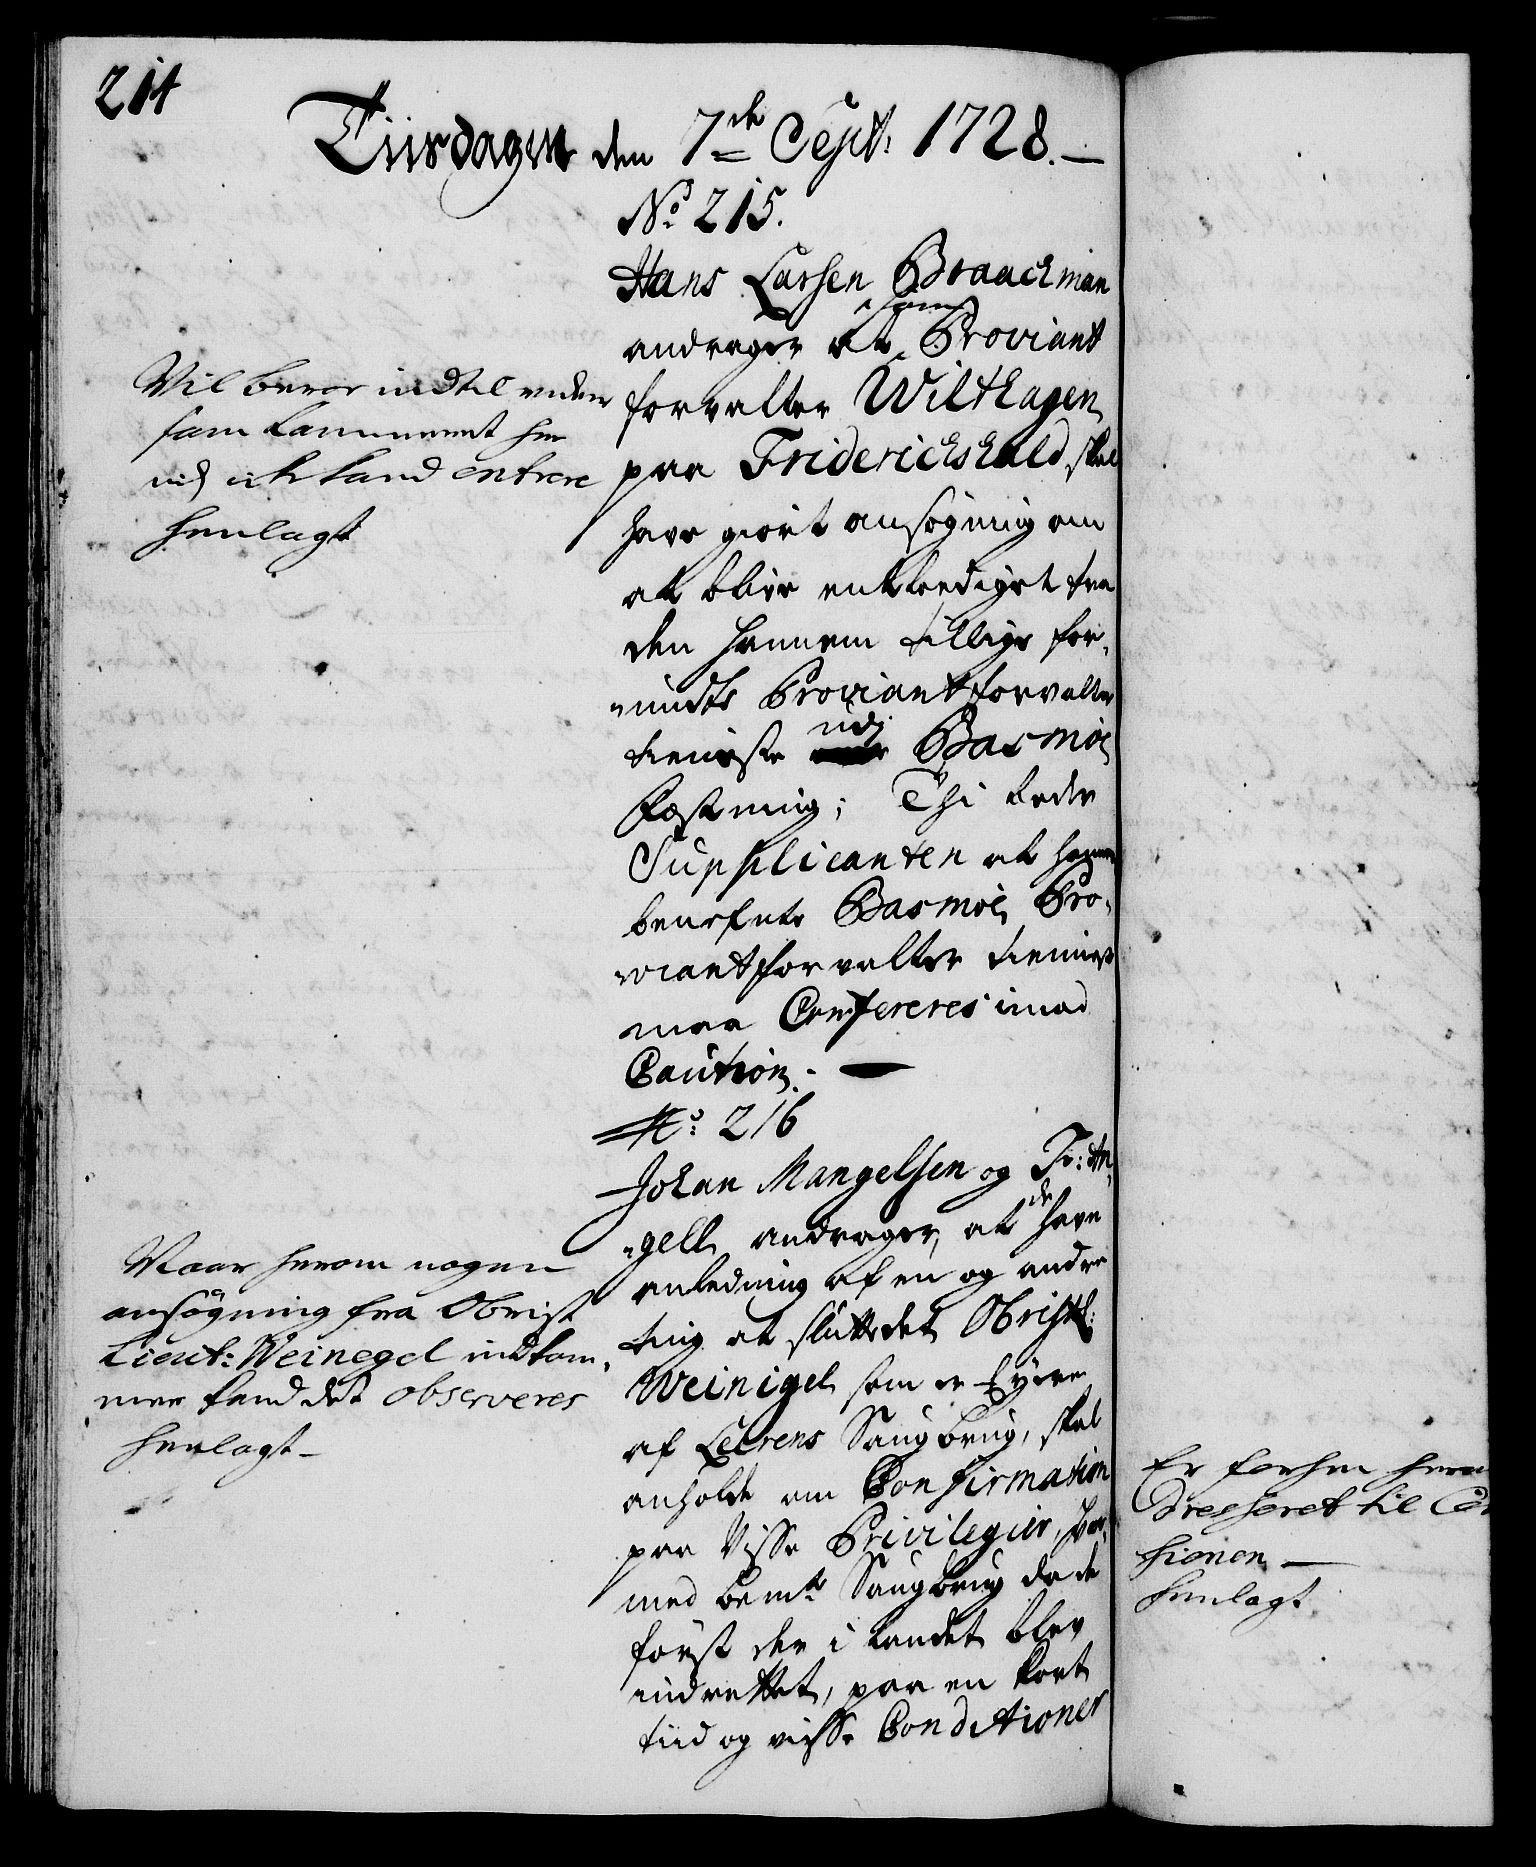 214
Tiirsdagen den 7de Sept: 1728.
No 215.
Hans Larsen Braackman
andrager at som Proviant
forvalter Wilthagen
paa Friderichshald skal
have giort ansøgning om
at blive entlediget fra
den hannem tillige for,
undte Proviantforvalter
tieniste udj Basmøe
Fæstning; Thi beder
Supplicanten at hannem
benefnte Basmøe Pro,
viantforvalter tieniste
maa Confereres imod
Caution.
Vil beroe indtil videre
henlagt
No: 216
Johan Mangelsen og Fr: An,
gell andrager, at de have
anledning af en og andre
ting at slutte det Obristl:
Weinigel som er Eyere
af Leerens Saugbrug, skal
anholde om Confirmation
paa Visse Privilegier, hvor,
med bemte Saugbrug da de
først der i landet blev
indrettet, paa en kort
tiid og visse Conditioner
Naar herom nogen
ansøgning fra Obrist
Lieut: Weinegel indkom,
mer kand det observeres
henlagt
Er forhen
dresseret til
sionen
henlagt